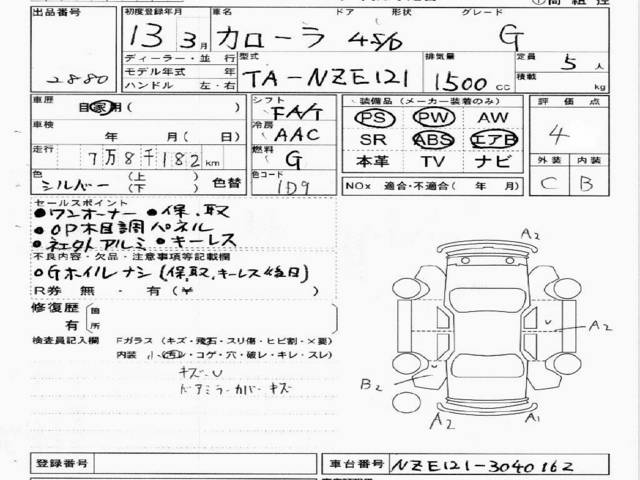 出品番号 初度登録年月 車名 ドア 形状 グレード
2880 13 3月 カローラ 4 5/6 G
ディーラー・並行 型式 排気量 定員 5 人
モデル年式 年 TA-NZE121 1500 cc 積載 kg
ハンドル 左・右
車歴 自家用( ) シフト FA/T 装備品(メーカー装着のみ) 評価点
車検 年 月(日) 冷房 AAC PS PW AW 4
走行 7万8千182km 燃料 G SR ABS エアB 外装 内装
色 シルバー (上) (下) 色替 色コード 1D9 本革 TV ナビ C B
NOx 適合・不適合( 年 月)
セールスポイント
●ワンオーナー ●保、取
●OP木目調パネル
●社外アルミ ●キーレス
不良内容・欠品・注意事項等記載欄
●Gホイルナシ(保、取、キーレス後日)
R券 無・有(¥ )
修復歴 箇
有 所
検査員記入欄 Fガラス(キズ・飛石・スリ傷・ヒビ割・×要)
内装 小(汚・コゲ・穴・破レ・キレ・スレ)
キズ・U
ドアミラーカバーキズ
A2
U A2
B2 U
A2 A1
登録番号 車台番号 NZE121-3040162